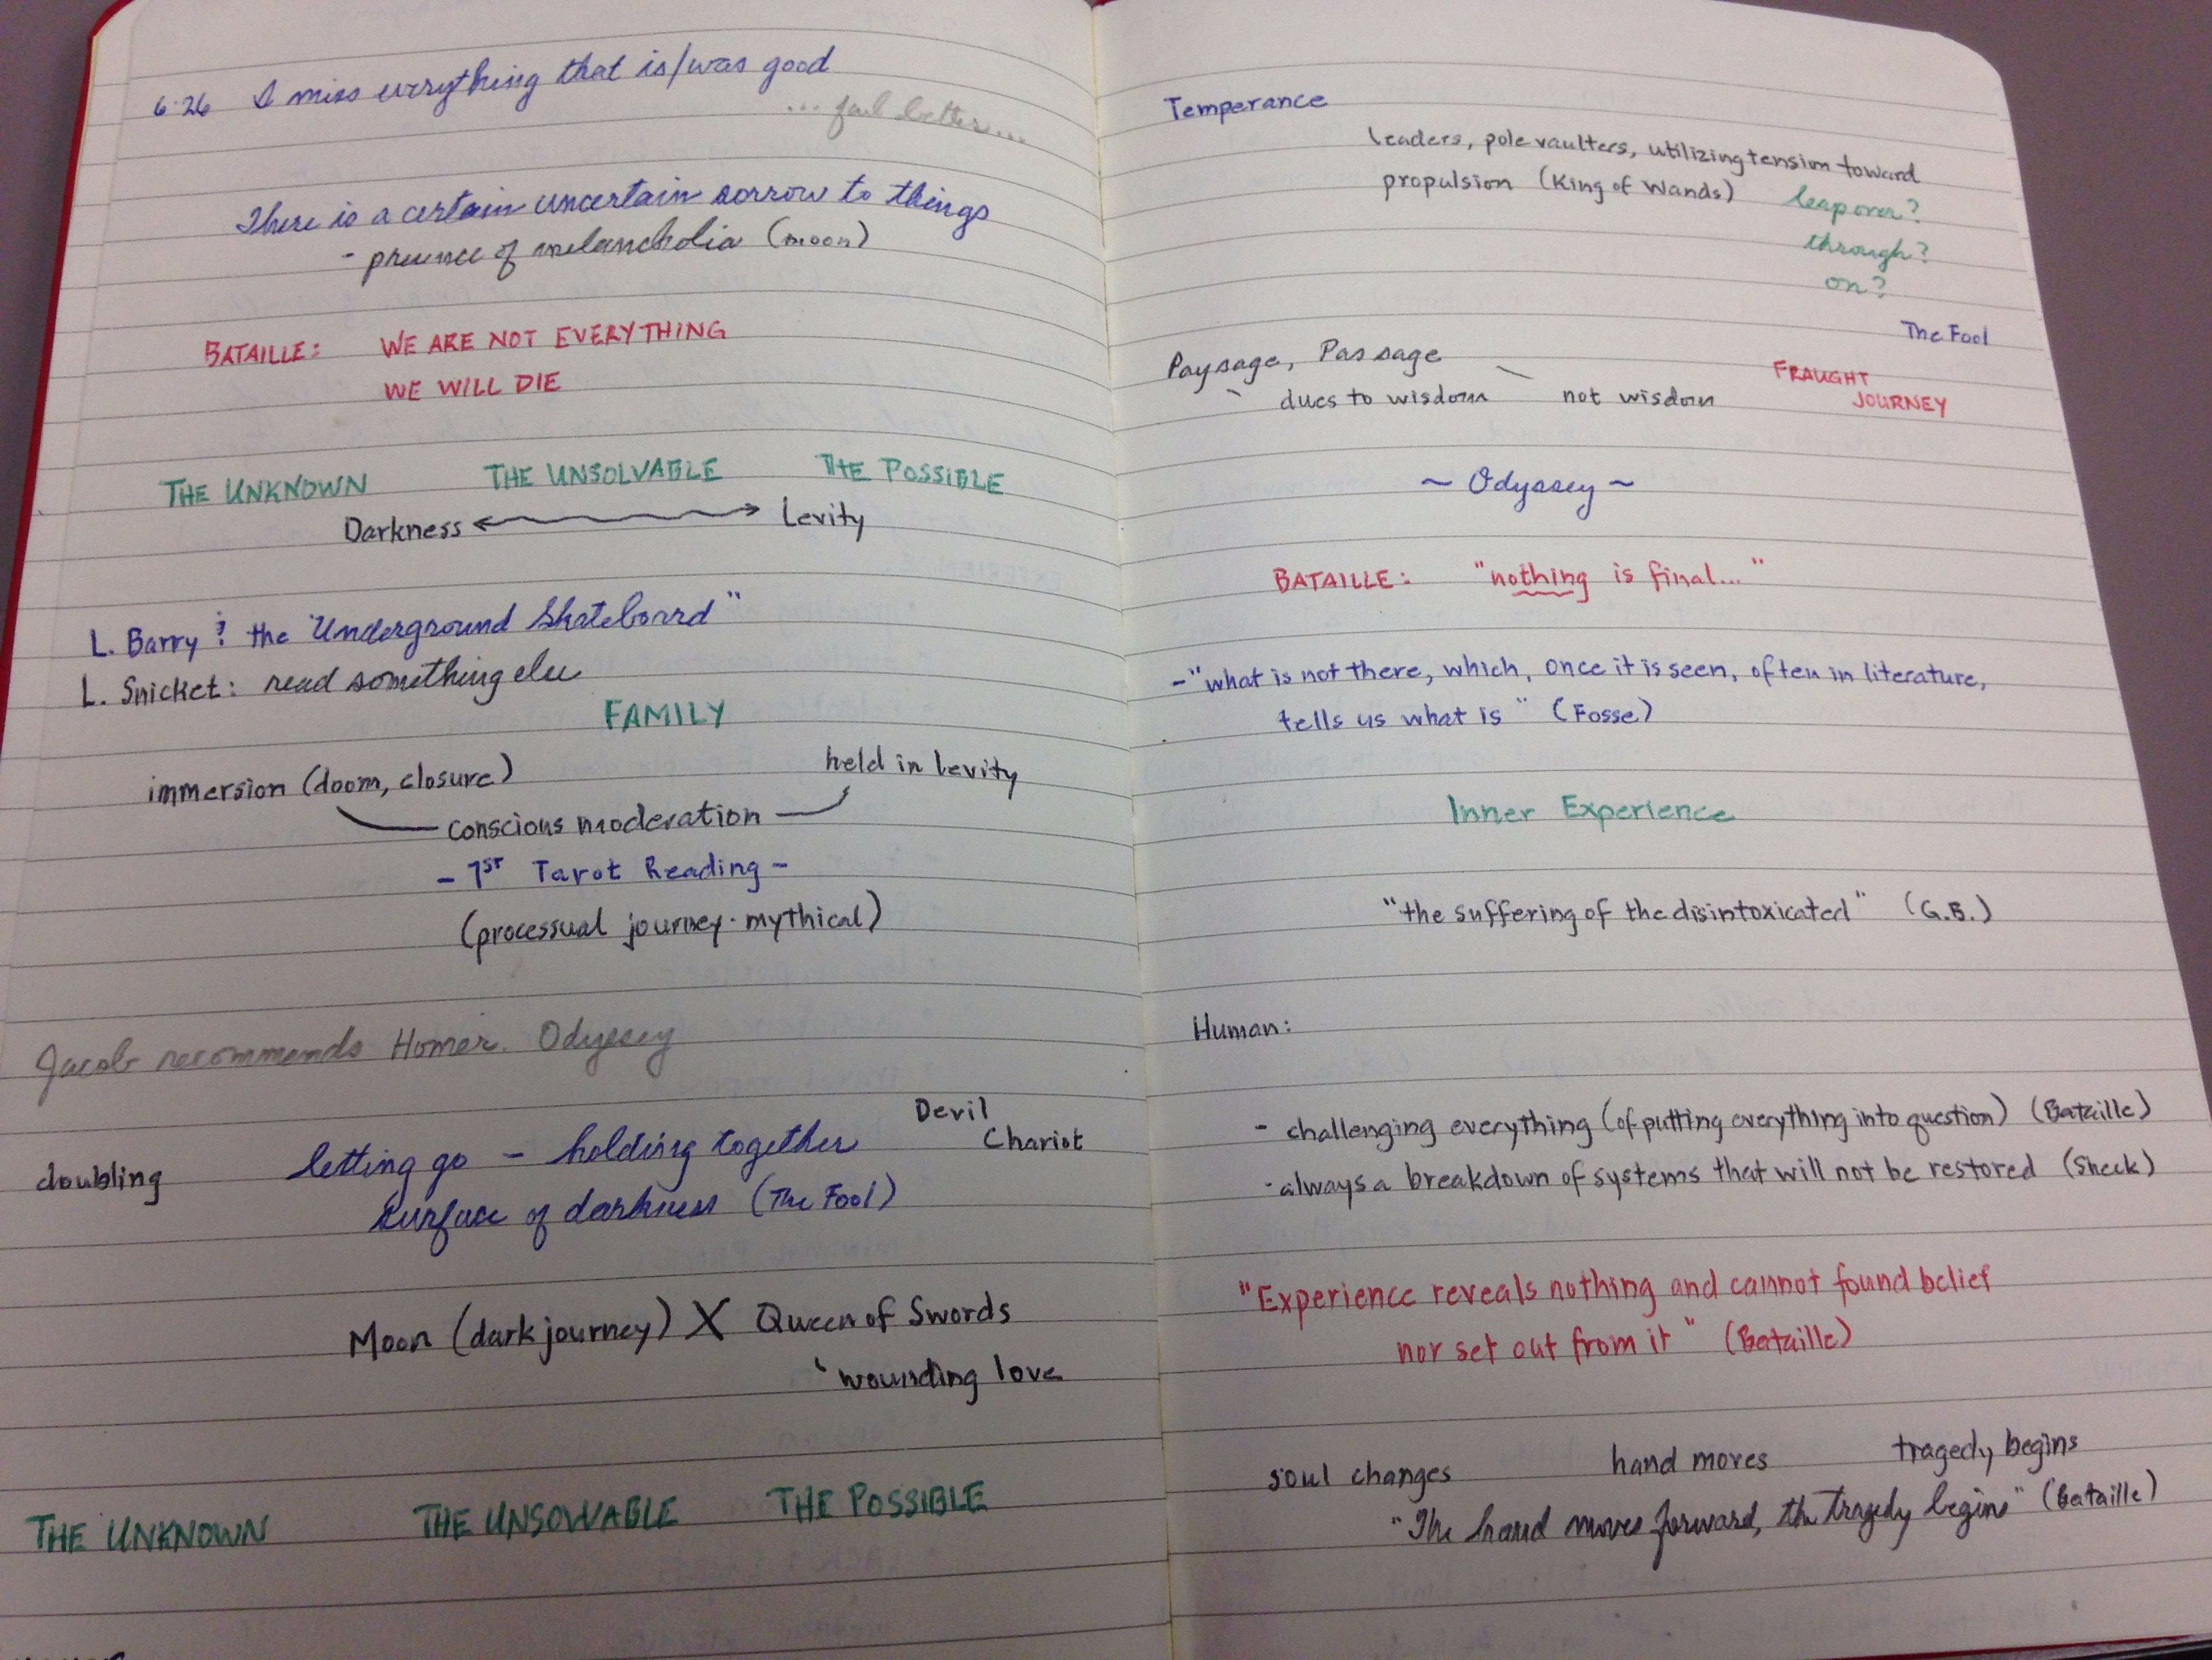 6·26 I miss everything that is/was good
... fail better...
There is a certain uncertain sorrow to things
- presence of melancholia (moon)
BATAILLE: WE ARE NOT EVERYTHING
WE WILL DIE
THE UNKNOWN THE UNSOLVABLE THE POSSIBLE
Darkness ⟷ Levity
L. Barry: the "Underground Skateboard"
L. Snicket: read something else
FAMILY
immersion (doom, closure) held in levity
conscious moderation
- 1ST Tarot Reading -
(processual journey · mythical)
Jacob recommends Homer. Odyssey
Devil
doubling letting go - holding together Chariot
surface of darkness (The Fool)
Moon (dark journey) X Queen of Swords
wounding love
THE UNKNOWN THE UNSOLVABLE THE POSSIBLE
Temperance
leaders, pole vaulters, utilizing tension toward
propulsion (King of Wands) leap over?
through?
on?
The Fool
Paysage, Passage FRAUGHT
dues to wisdom not wisdom JOURNEY
~ Odyssey ~
BATAILLE: "nothing is final..."
-"what is not there, which, once it is seen, often in literature,
tells us what is" (Fosse)
Inner Experience
"the suffering of the disintoxicated" (G.B.)
Human:
- challenging everything (of putting everything into question) (Bataille)
- always a breakdown of systems that will not be restored (Sheck)
"Experience reveals nothing and cannot found belief
nor set out from it" (Bataille)
soul changes hand moves tragedy begins
"The hand moves forward, the tragedy begins" (Bataille)